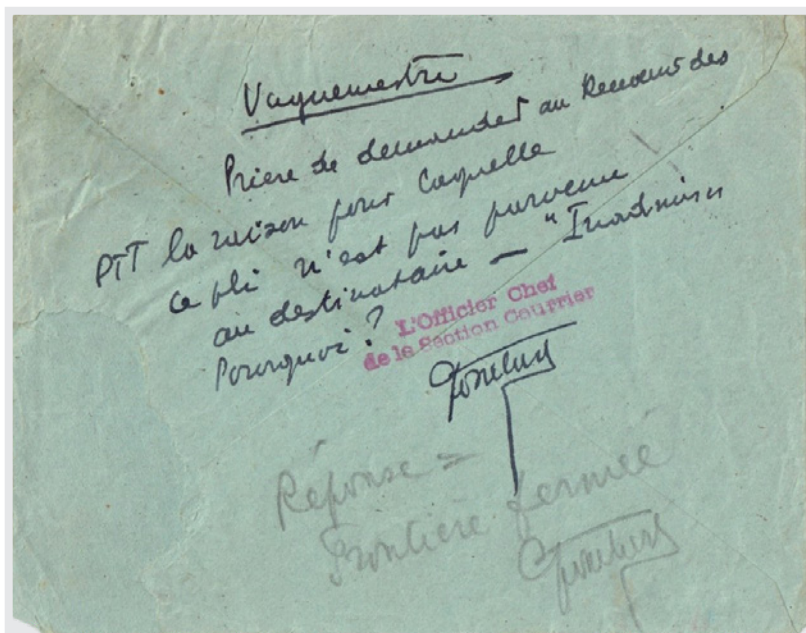 Vaguemestre
Prière de demander au Receveur des
PTT la raison pour laquelle
ce pli n'est pas parvenu
au destinataire — "Inadmis"
Pourquoi ?
L'Officier Chef
de la Section Courrier
Réponse =
Frontière fermée